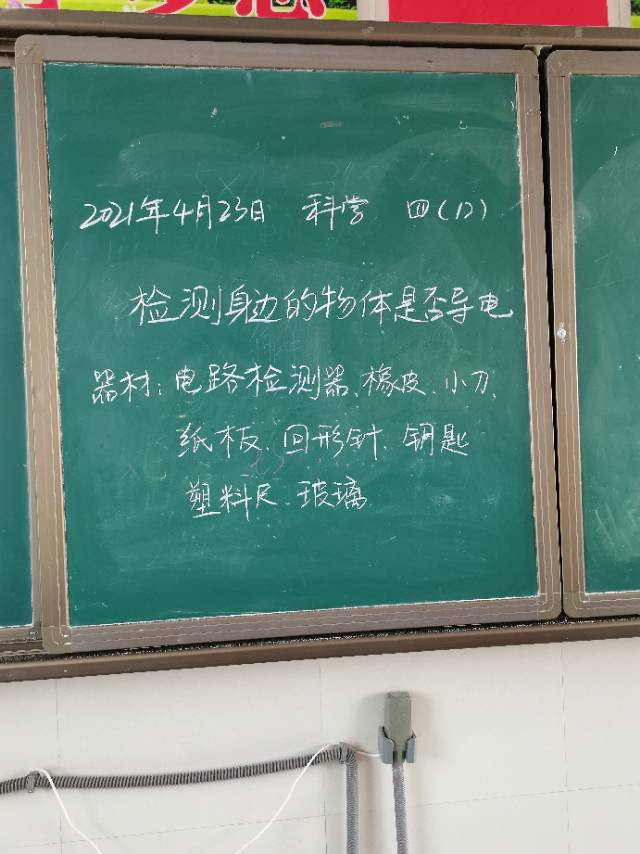 2021年4月23日 科学 四(12)
检测身边的物体是否导电
器材:电路检测器、橡皮、小刀、
纸板、回形针、钥匙
塑料尺、玻璃